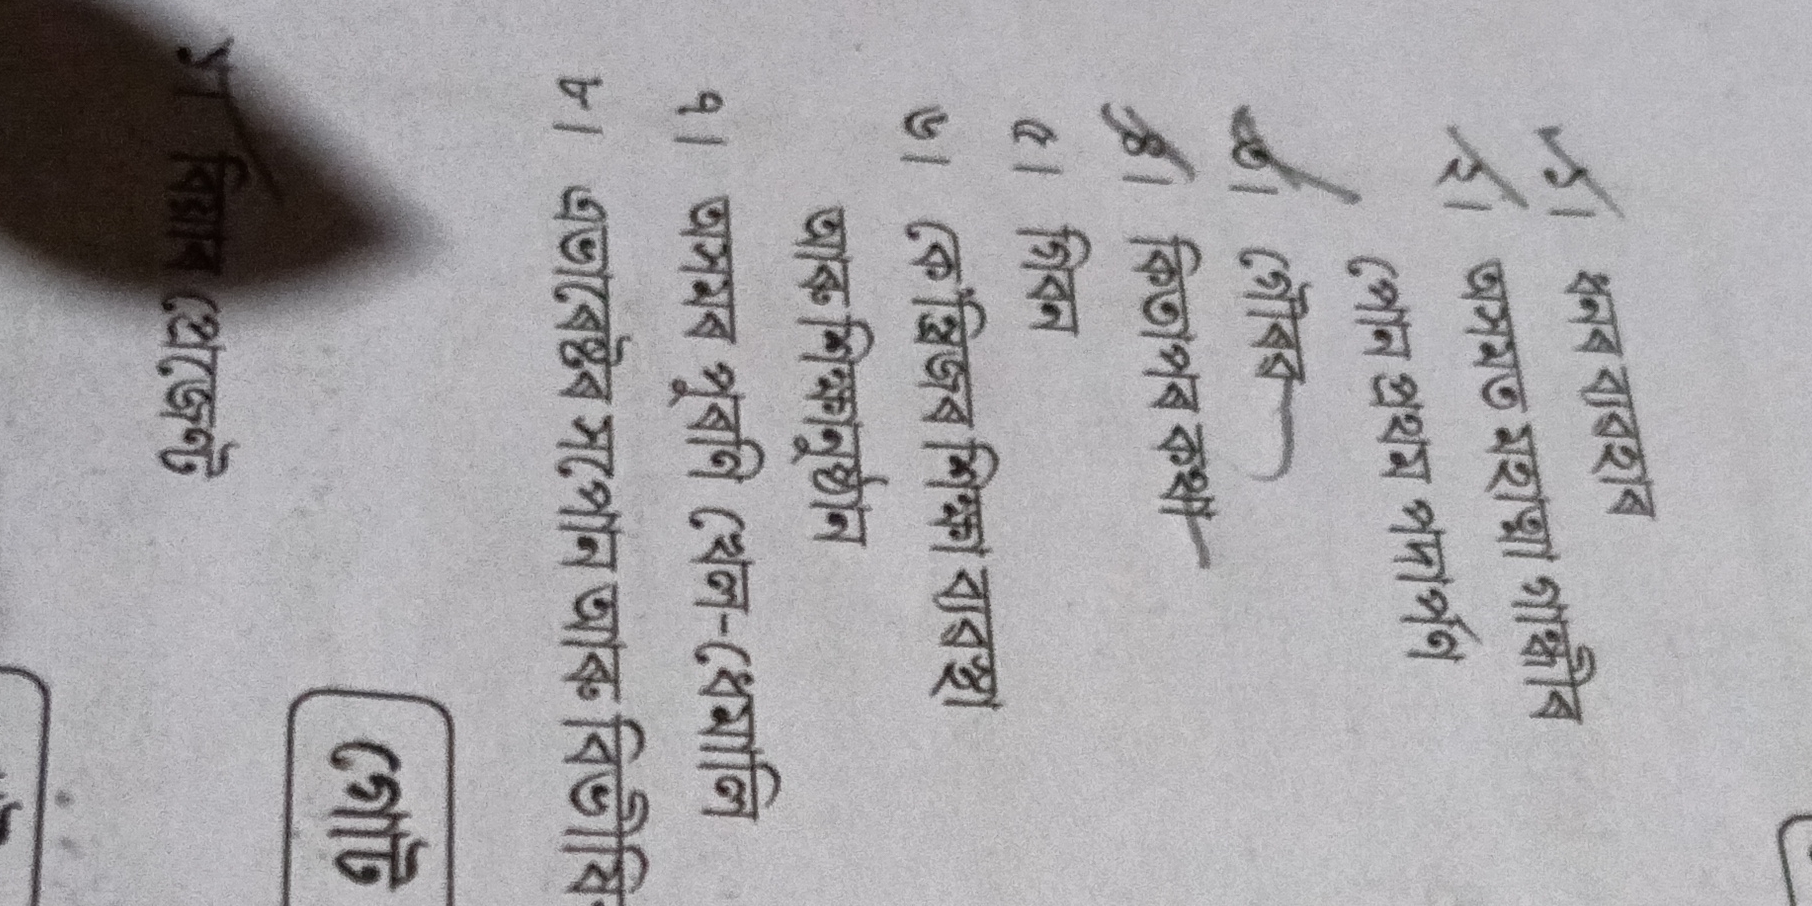 ১। ধনৰ ব্যৱহাৰ
২। অসমত মহাত্মা গান্ধীৰ
পোন প্ৰথম পদাৰ্পণ
৩। গৌৰৱ
৪। কিতাপৰ কথা
৫। গিবন
৬। কেম্ব্ৰিজৰ শিক্ষা ব্যৱস্থা
আৰু শিক্ষানুষ্ঠান
৭। অসমৰ পুৰণি খেল-ধেমালি
৮। এভাৰেষ্টৰ সপোন আৰু বিভীষি
গোট
১। বিয়াৰ প্ৰেজেণ্ট